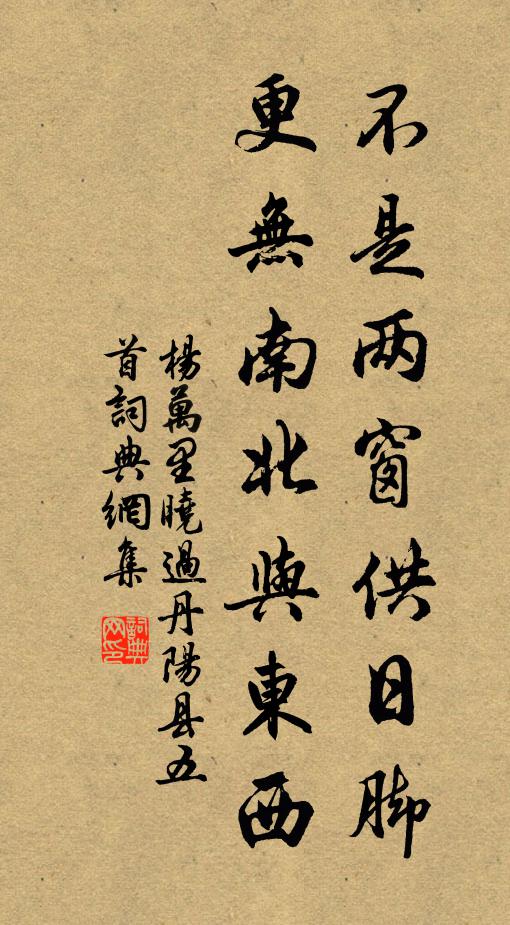 不是两窗供日脚
更無南北與東西
楊萬里曉過丹陽县五
首詞典網集
詞典
网印